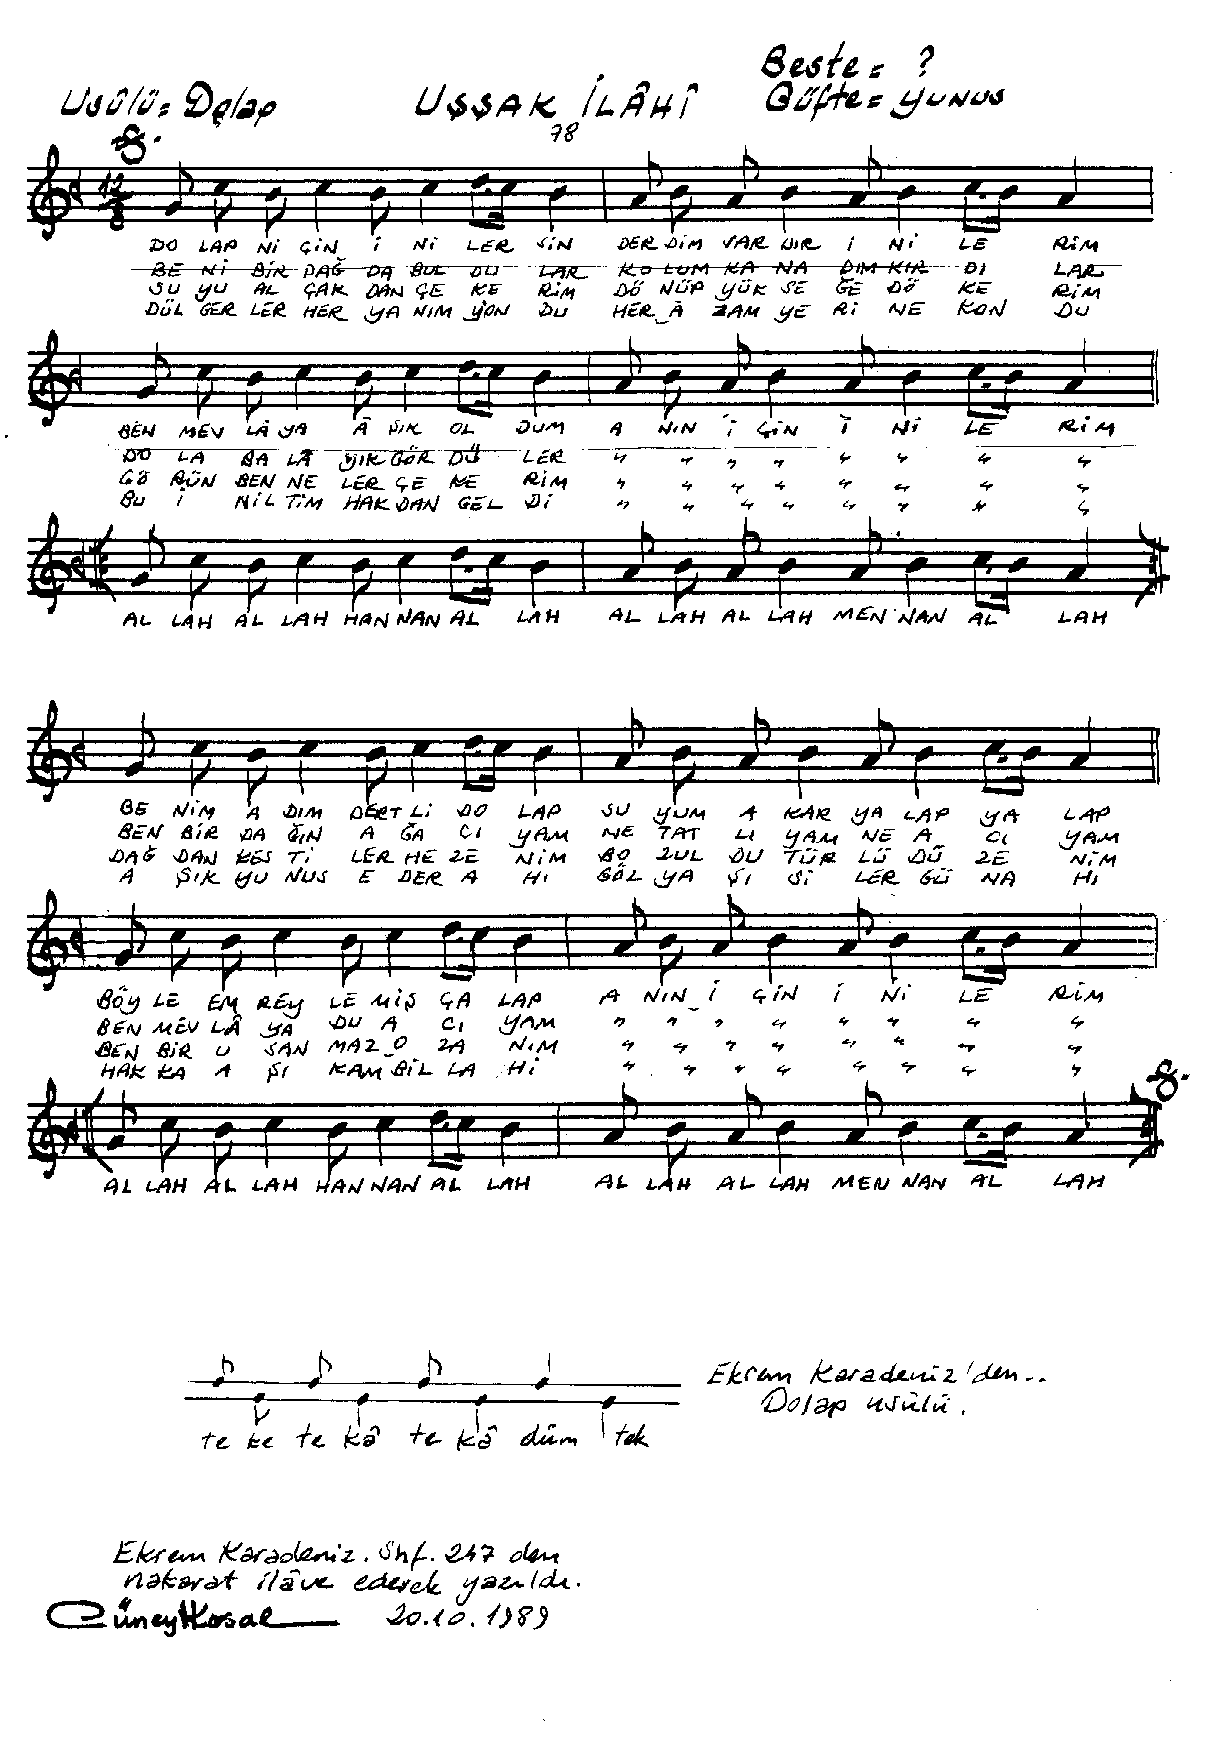 Beste = ?
Usûlü = Dolap UŞŞAK İLÂHÎ Güfte = YUNUS
78
12
8
DO LAP NI ÇİN İ Nİ LER SİN DER DİM VAR DIR İ Nİ LE RİM
BE Nİ BİR DAĞ DA BUL DU LAR KO LUM KA NA DIM KIR DI LAR
SU YU AL ÇAK DAN ÇE KE RİM DÖ NÜP YÜK SE ĞE DÖ KE RİM
DÜL GER LER HER YA NIM YON DU HER Â ZAM YE Rİ NE KON DU
BEN MEV LÂ YA Â ŞIK OL DUM A NIN İ ÇİN İ Nİ LE RİM
DO LA BA LÂ YIK GÖR DÜ LER " " " " " " " "
GÖ RÜN BEN NE LER ÇE KE RİM " " " " " " " "
BU İ NİL TİM HAK DAN GEL Dİ " " " " " " " "
AL LAH AL LAH HAN NAN AL LAH AL LAH AL LAH MEN NAN AL LAH
BE NİM A DIM DERT Lİ DO LAP SU YUM A KAR YA LAP YA LAP
BEN BİR DA ĞIN A ĞA CI YAM NE TAT LI YAM NE A CI YAM
DAĞ DAN KES Tİ LER HE ZE NİM BO ZUL DU TÜR LÜ DÜ ZE NİM
A ŞIK YU NUS E DER A HI GÖZ YA ŞI Sİ LER GÜ NA HI
BÖY LE EM REY LE MİŞ ÇA LAP A NIN İ ÇİN İ Nİ LE RİM
BEN MEV LÂ YA DU A CI YAM " " " " " " " "
BEN BİR U SAN MAZ O ZA NIM " " " " " " " "
HAK KA A ŞI KAM BİL LA HI " " " " " " " "
AL LAH AL LAH HAN NAN AL LAH AL LAH AL LAH MEN NAN AL LAH
Ekrem Karadeniz'den..
Dolap usûlü.
te ke te kâ te kâ düm tek
Ekrem Karadeniz. Shf. 247 den
nakarat ilâve ederek yazıldı.
Cüneyt Kosal 20.10.1989